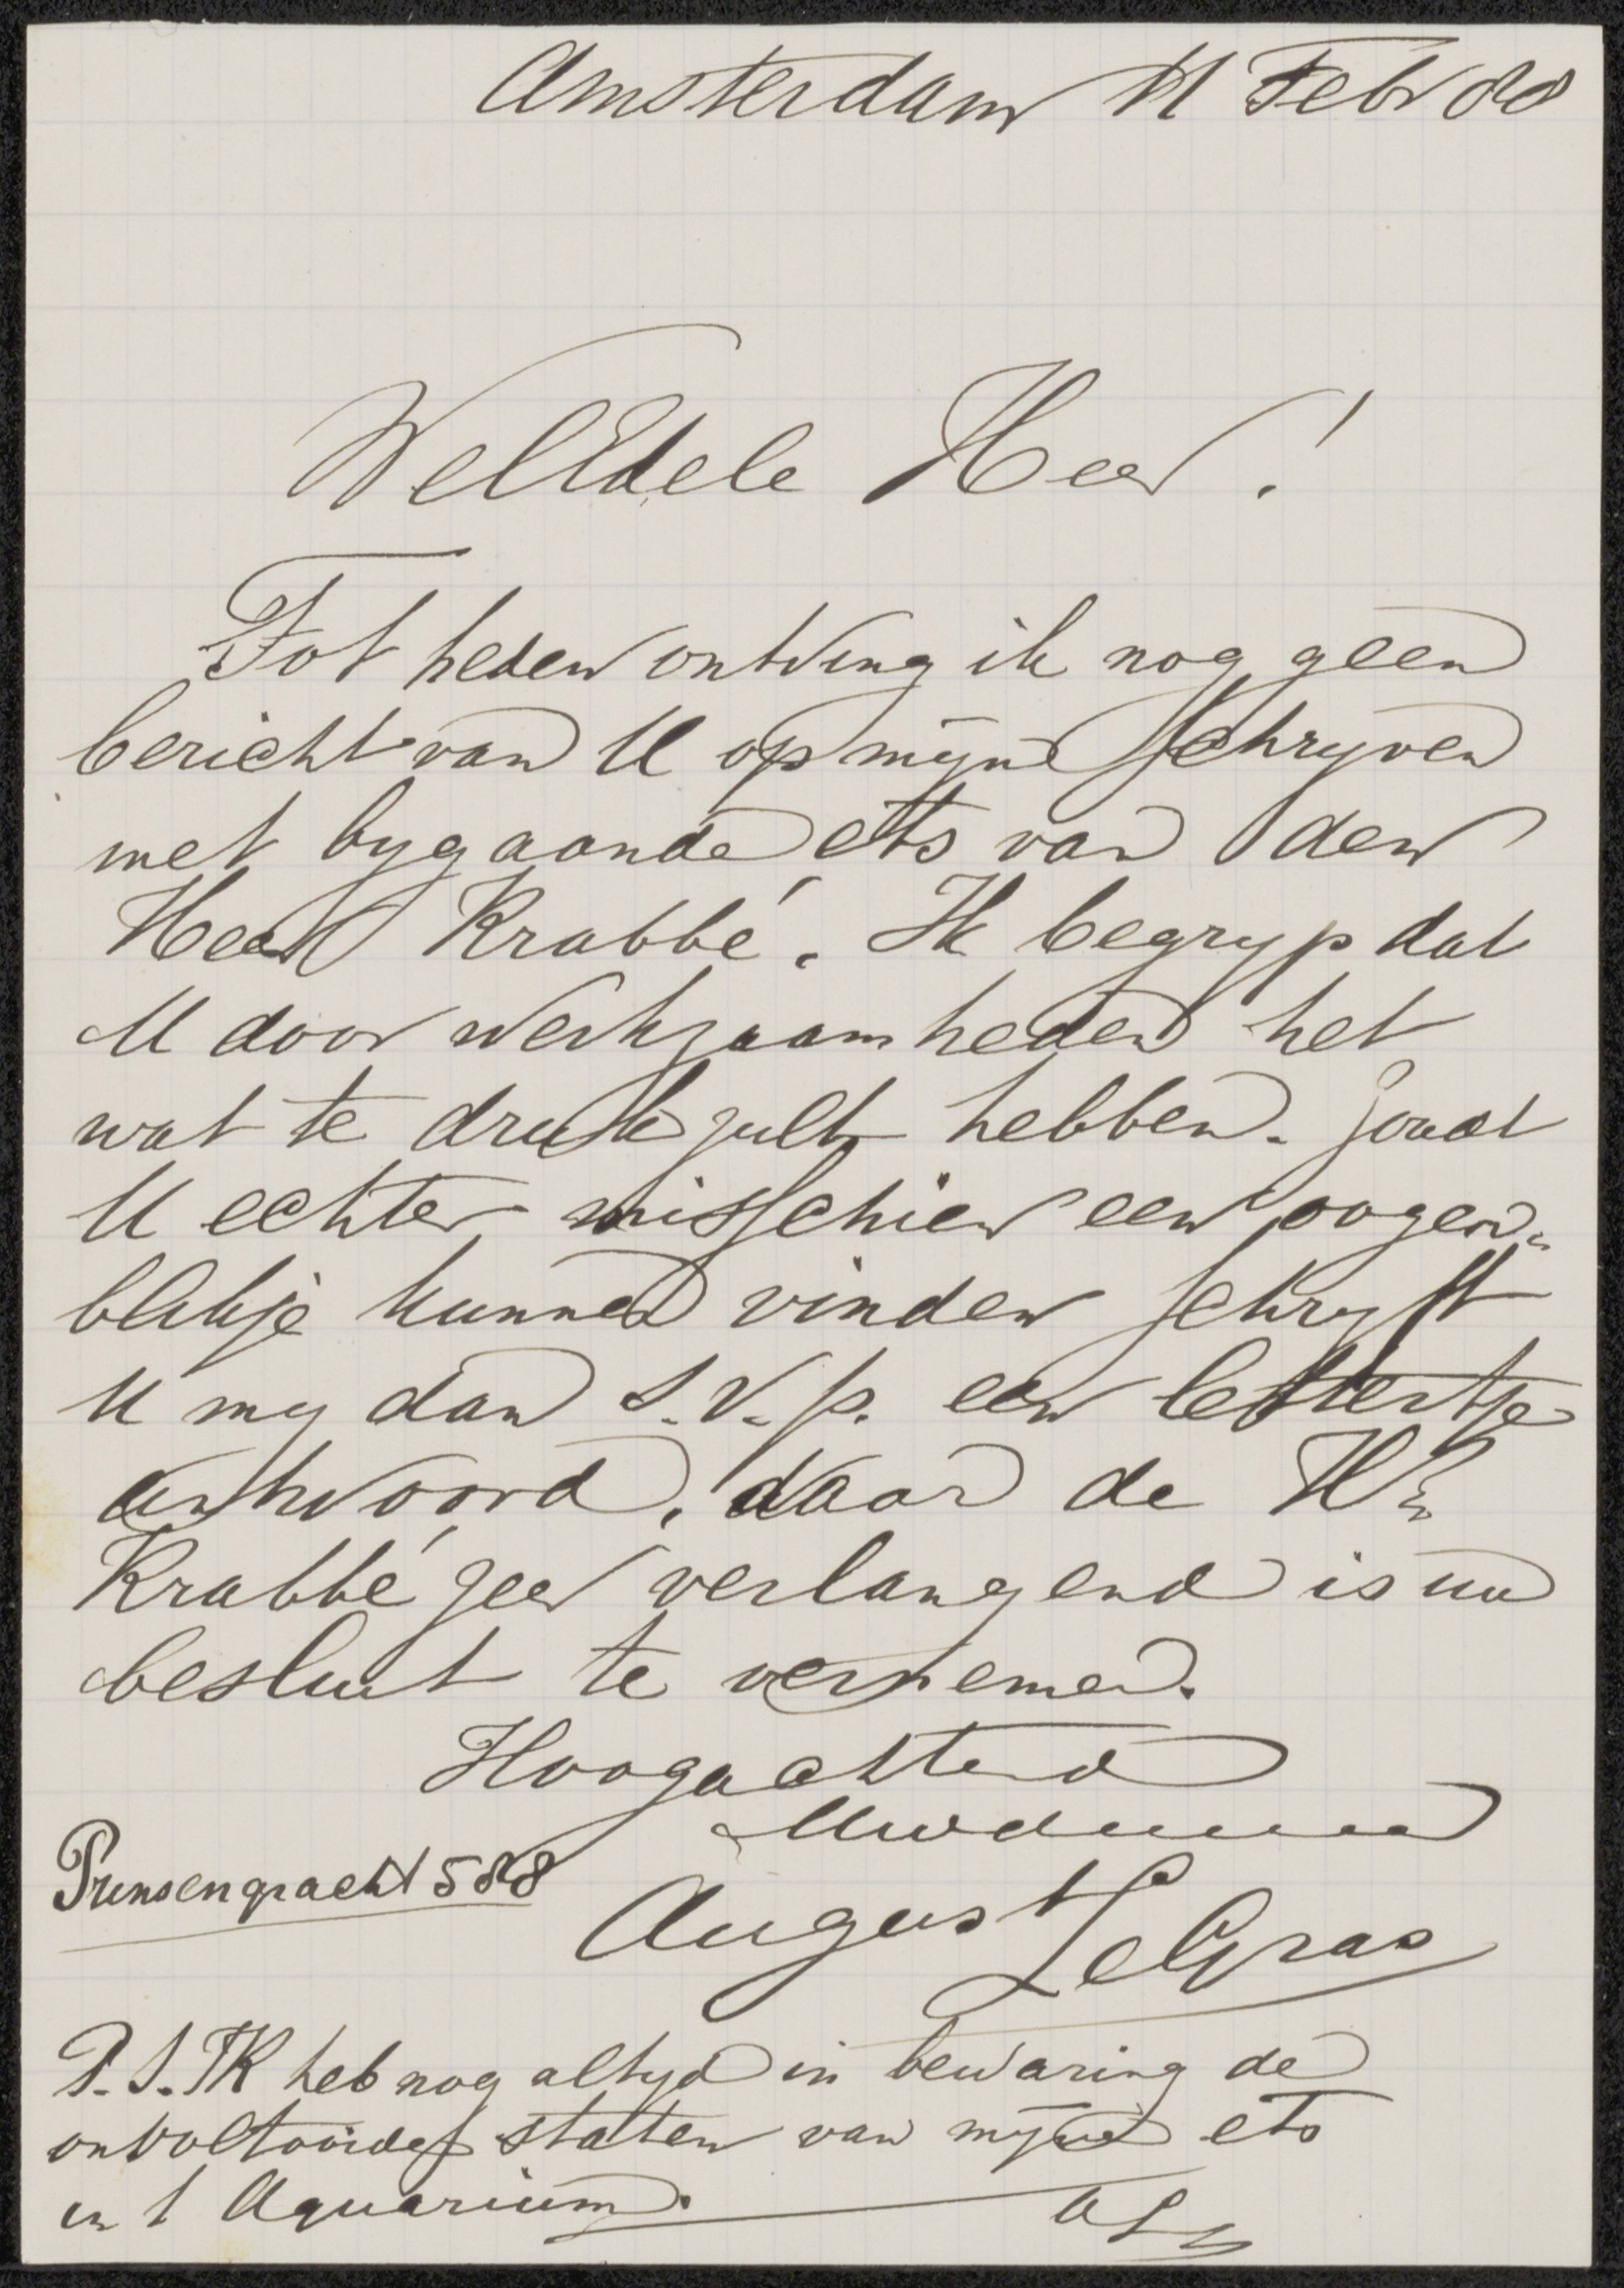 Amsterdam 11 Febr 88
WelEdele Heer!
Tot heden ontving ik nog geen
bericht van U op mijne schryven
met bygaande ets van den
Heer Krabbé. Ik begryp dat
U door werkzaamheden het
wat te druk zult hebben. zoudt
U echter misschien een oogen-
blikje kunnen vinden schryft
U my dan S.V.p. een lettertje
antwoord, daar de Hr
Krabbé zeer verlangend is uw
besluit te vernemen.
Hoogachtend
Uwdienaar
Prinsengracht 588
August LeGras
P.S. Ik heb nog altyd in bewaring de
onvoltooide staten van mijne ets
in t Aquarium.
ALG